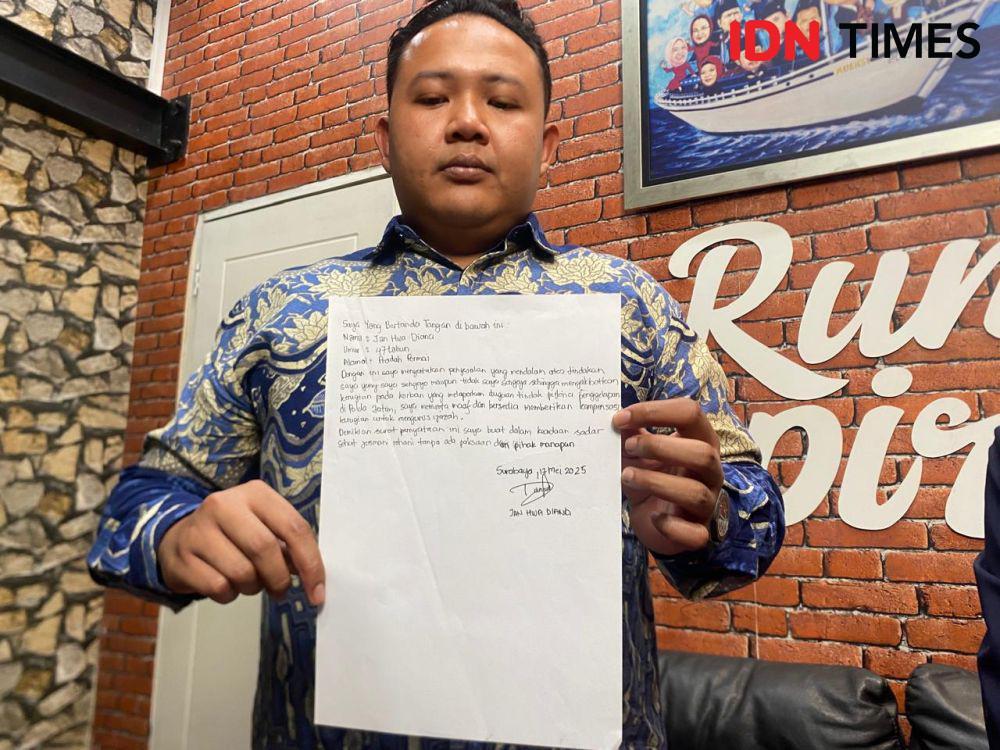 IDN TIMES
Saya Yang Bertanda Tangan di bawah ini :
Nama : Jan Hwa Diana
Umur : 47 tahun
Alamat : Pradah Permai
Dengan ini saya menyatakan penyesalan yang mendalam atas tindakan
saya yang saya sengaja maupun tidak saya sengaja sehingga mengakibatkan
kerugian pada korban yang melaporkan dugaan tindak pidana penggelapan
di Polda Jatim, saya meminta maaf dan bersedia memberikan kompensasi
kerugian untuk mengurus ijazah.
Demikian surat pernyataan ini saya buat dalam keadaan sadar
sehat jasmani rohani tanpa ada paksaan dari pihak manapun
Surabaya, 17 Mei 2025
JAN HWA DIANA